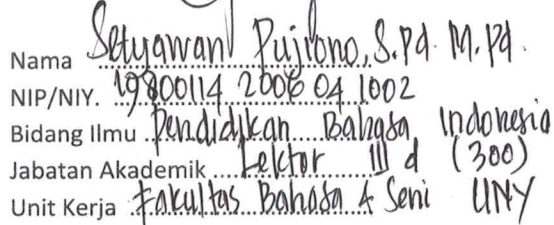 Nama Setyawan Pujiono, S.Pd. M.Pd.
NIP/NIY. 19800114 2006 04 1002
Bidang Ilmu Pendidikan Bahasa Indonesia
Jabatan Akademik Lektor III d (300)
Unit Kerja Fakultas Bahasa & Seni UNY